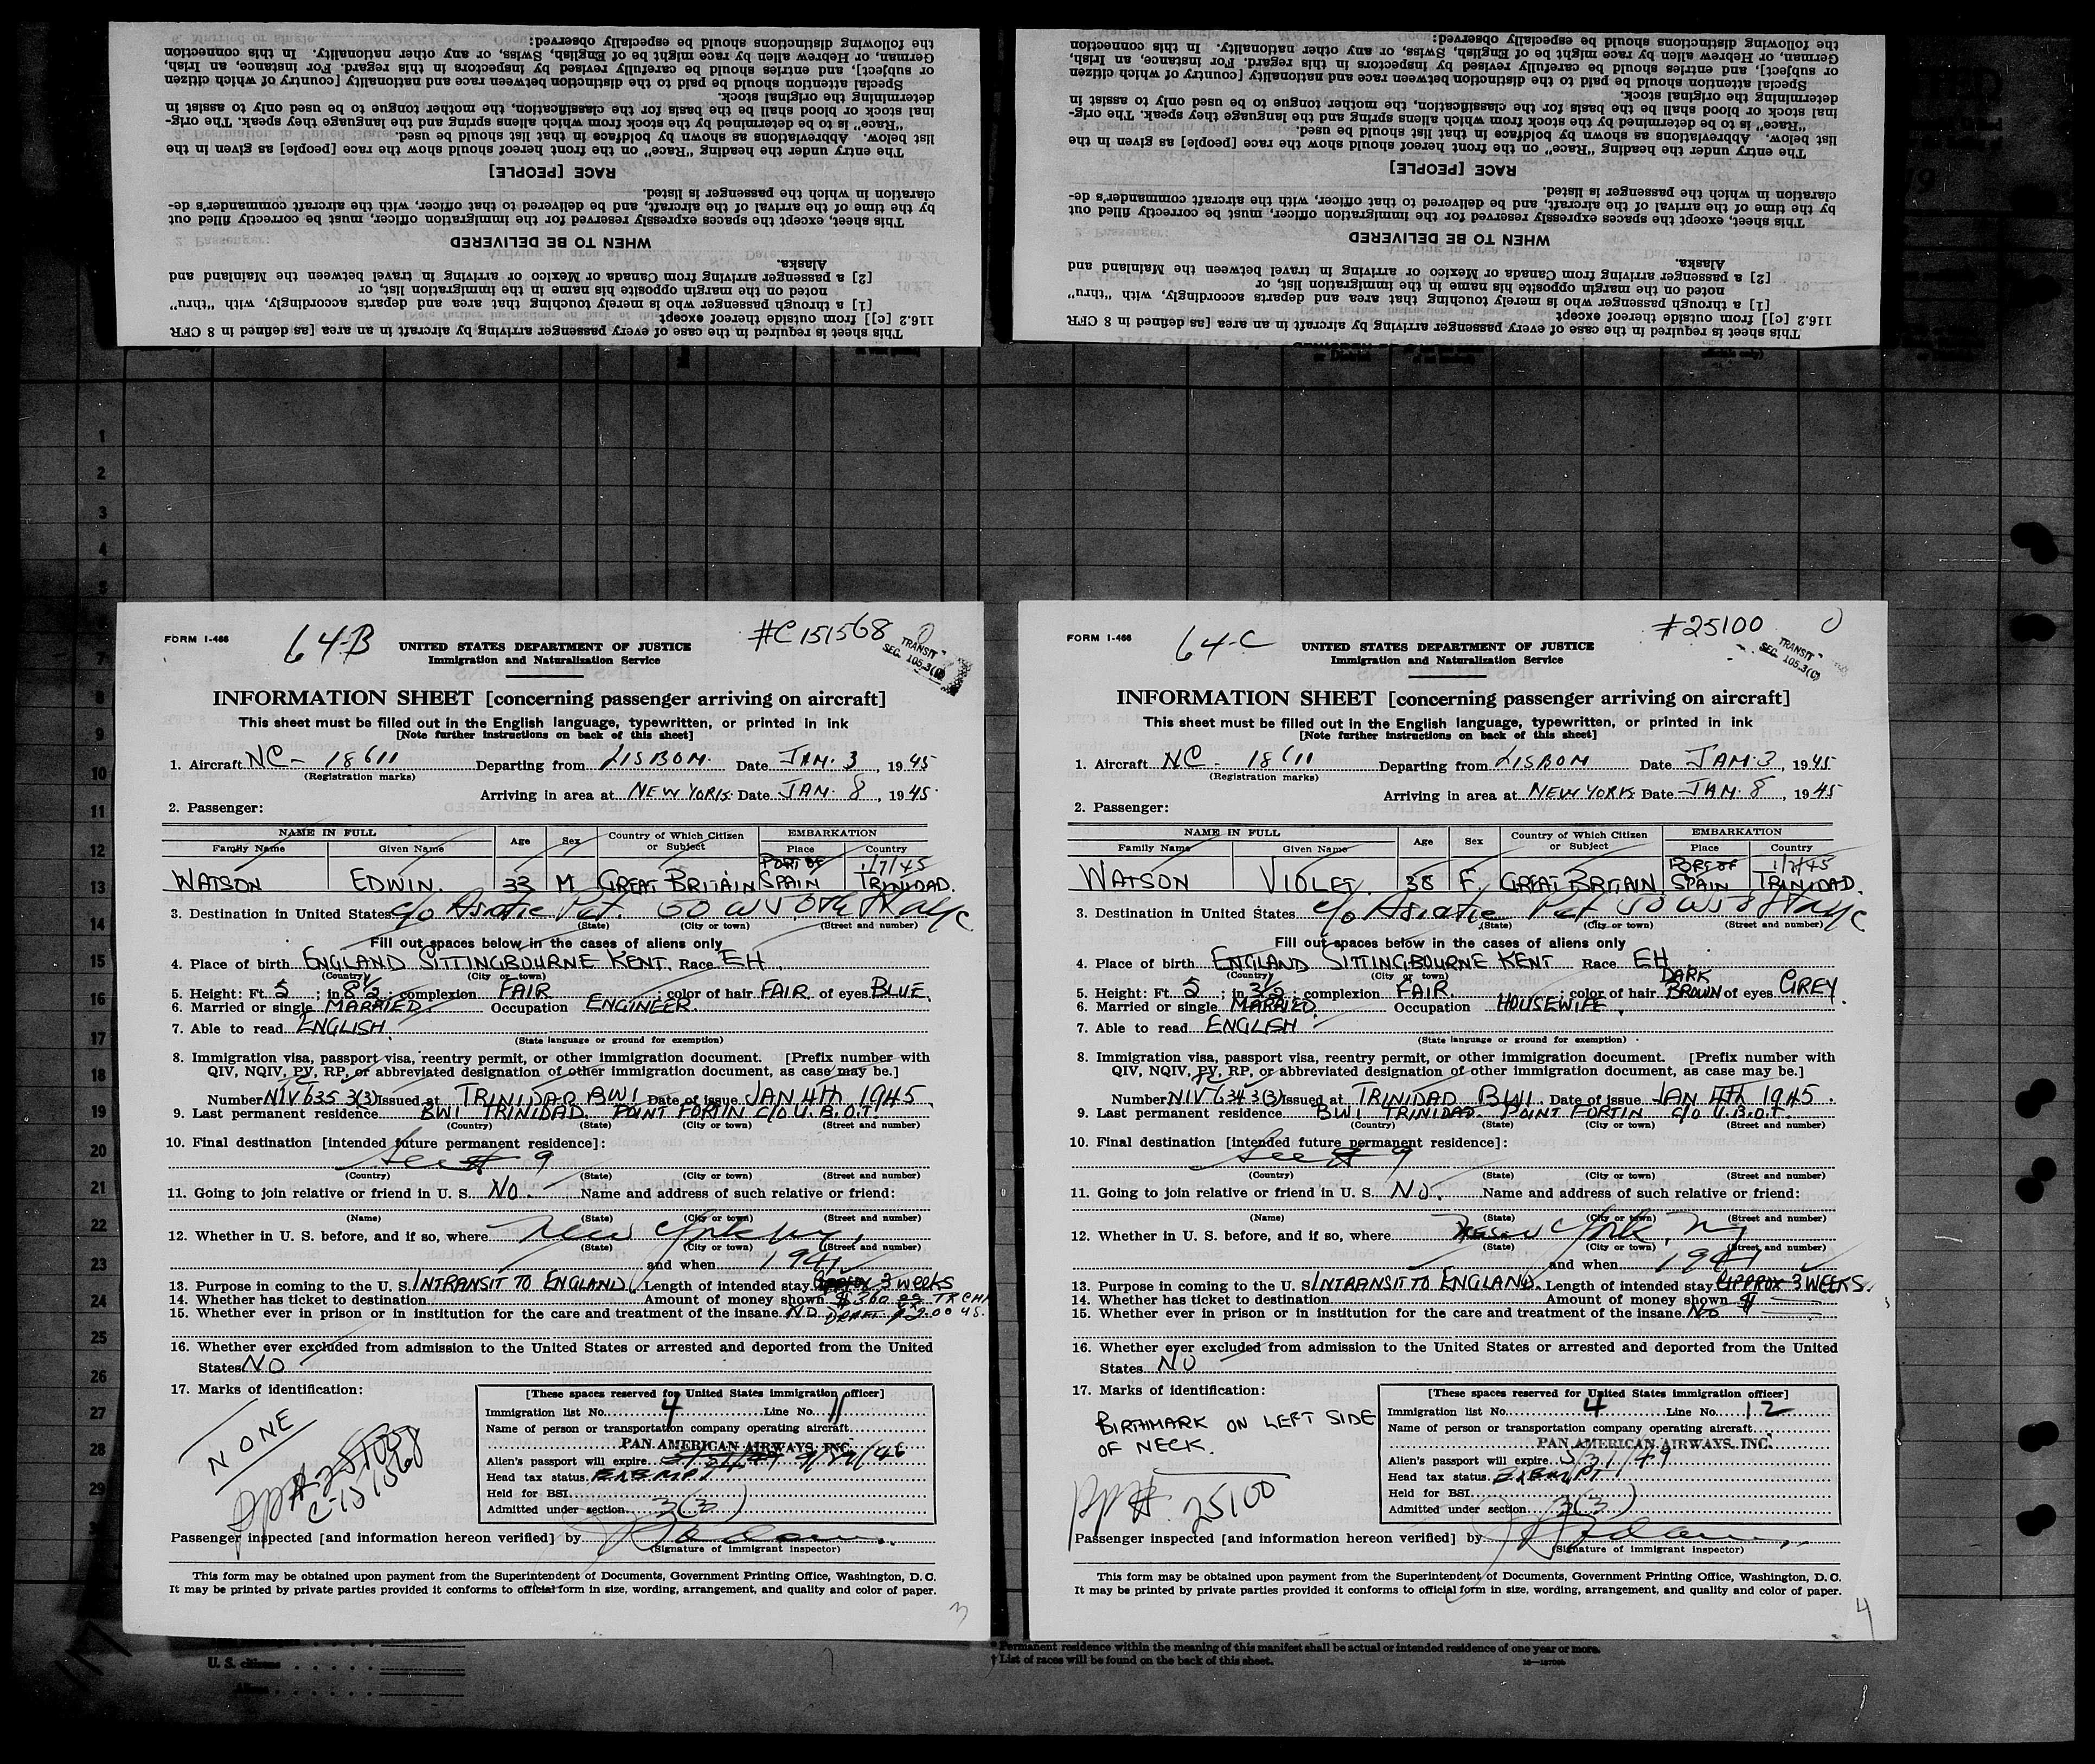 This sheet is required in the case of every passenger arriving by aircraft in an area [as defined in 8 CFR
116.2 [c]] from outside thereof except
[1] a through passenger who is merely touching that area and departs accordingly, with "thru"
noted on the margin opposite his name in the immigration list, or
[2] a passenger arriving from Canada or Mexico or arriving in travel between the Mainland and
Alaska.
WHEN TO BE DELIVERED
This sheet, except the spaces expressly reserved for the immigration officer, must be correctly filled out
by the time of the arrival of the aircraft, and be delivered to that officer, with the aircraft commander's de-
claration in which the passenger is listed.
RACE [PEOPLE]
The entry under the heading "Race" on the front hereof should show the race [people] as given in the
list below. Abbreviations as shown by boldface in that list should be used.
"Race" is to be determined by the stock from which aliens spring and the language they speak. The orig-
inal stock or blood shall be the basis for the classification, the mother tongue to be used only to assist in
determining the original stock.
Special attention should be paid to the distinction between race and nationality [country of which citizen
or subject], and entries should be carefully revised by inspectors in this regard. For instance, an Irish,
German, or Hebrew alien by race might be of English, Swiss, or any other nationality. In this connection
the following distinctions should be especially observed:
This sheet is required in the case of every passenger arriving by aircraft in an area [as defined in 8 CFR
116.2 [c]] from outside thereof except
[1] a through passenger who is merely touching that area and departs accordingly, with "thru"
noted on the margin opposite his name in the immigration list, or
[2] a passenger arriving from Canada or Mexico or arriving in travel between the Mainland and
Alaska.
WHEN TO BE DELIVERED
This sheet, except the spaces expressly reserved for the immigration officer, must be correctly filled out
by the time of the arrival of the aircraft, and be delivered to that officer, with the aircraft commander's de-
claration in which the passenger is listed.
RACE [PEOPLE]
The entry under the heading "Race" on the front hereof should show the race [people] as given in the
list below. Abbreviations as shown by boldface in that list should be used.
"Race" is to be determined by the stock from which aliens spring and the language they speak. The orig-
inal stock or blood shall be the basis for the classification, the mother tongue to be used only to assist in
determining the original stock.
Special attention should be paid to the distinction between race and nationality [country of which citizen
or subject], and entries should be carefully revised by inspectors in this regard. For instance, an Irish,
German, or Hebrew alien by race might be of English, Swiss, or any other nationality. In this connection
the following distinctions should be especially observed:
FORM I-466 64-B #C151568
UNITED STATES DEPARTMENT OF JUSTICE
Immigration and Naturalization Service
TRANSIT
SEC. 105.3(C)
INFORMATION SHEET [concerning passenger arriving on aircraft]
This sheet must be filled out in the English language, typewritten, or printed in ink
[Note further instructions on back of this sheet]
1. Aircraft NC - 18611 Departing from LISBON. Date JAN. 3, 1945
(Registration marks)
Arriving in area at NEW YORK. Date JAN. 8, 1945.
2. Passenger:
NAME IN FULL Age Sex Country of Which Citizen or Subject EMBARKATION
Family Name Given Name Place Country
WATSON EDWIN. 33 M GREAT BRITAIN PORT OF SPAIN 1/7/45 TRINIDAD.
3. Destination in United States c/o Asiatic Pet. 50 W 50th St NYC
(State) (City or town) (Street and number)
Fill out spaces below in the cases of aliens only
4. Place of birth ENGLAND SITTINGBOURNE KENT. Race EH.
(Country) (City or town)
5. Height: Ft. 5; in 8½; complexion FAIR; color of hair FAIR of eyes BLUE.
6. Married or single MARRIED. Occupation ENGINEER.
7. Able to read ENGLISH.
(State language or ground for exemption)
8. Immigration visa, passport visa, reentry permit, or other immigration document. [Prefix number with
QIV, NQIV, PV, RP, or abbreviated designation of other immigration document, as case may be.]
Number NIV 635 3(3) Issued at TRINIDAD BWI Date of issue JAN 4TH 1945.
9. Last permanent residence BWI TRINIDAD. POINT FORTIN C/O U.B.O.T.
(Country) (State) (City or town) (Street and number)
10. Final destination [intended future permanent residence]:
See # 9
(Country) (State) (City or town) (Street and number)
11. Going to join relative or friend in U. S. NO. Name and address of such relative or friend:
(Name) (State) (City or town) (Street and number)
12. Whether in U. S. before, and if so, where New York NY,
(State) (City or town) (Street and number)
and when 1941
13. Purpose in coming to the U. S. INTRANSIT TO ENGLAND. Length of intended stay APPROX 3 WEEKS
14. Whether has ticket to destination Amount of money shown $ 360.00
15. Whether ever in prison or in institution for the care and treatment of the insane NO
16. Whether ever excluded from admission to the United States or arrested and deported from the United
States NO
17. Marks of identification:
NONE
C-151568
[These spaces reserved for United States immigration officer]
Immigration list No. 4 Line No. 11
Name of person or transportation company operating aircraft
PAN AMERICAN AIRWAYS, INC.
Alien's passport will expire
Head tax status EXEMPT
Held for BSI
Admitted under section 3(3)
Passenger inspected [and information hereon verified] by
(Signature of immigrant inspector)
This form may be obtained upon payment from the Superintendent of Documents, Government Printing Office, Washington, D. C.
It may be printed by private parties provided it conforms to official form in size, wording, arrangement, and quality and color of paper.
3
FORM I-466 64-C #25100
UNITED STATES DEPARTMENT OF JUSTICE
Immigration and Naturalization Service
TRANSIT
SEC. 105.3(C)
INFORMATION SHEET [concerning passenger arriving on aircraft]
This sheet must be filled out in the English language, typewritten, or printed in ink
[Note further instructions on back of this sheet]
1. Aircraft NC - 18611 Departing from LISBON Date JAN. 3, 1945.
(Registration marks)
Arriving in area at NEW YORK Date JAN. 8, 1945
2. Passenger:
NAME IN FULL Age Sex Country of Which Citizen or Subject EMBARKATION
Family Name Given Name Place Country
WATSON VIOLET. 38 F. GREAT BRITAIN PORT OF SPAIN 1/7/45 TRINIDAD.
3. Destination in United States c/o Asiatic Pet 50 W 50 St NYC
(State) (City or town) (Street and number)
Fill out spaces below in the cases of aliens only
4. Place of birth ENGLAND SITTINGBOURNE KENT Race EH
(Country) (City or town)
5. Height: Ft. 5; in 3½; complexion FAIR.; color of hair DARK BROWN of eyes GREY.
6. Married or single MARRIED. Occupation HOUSEWIFE.
7. Able to read ENGLISH.
(State language or ground for exemption)
8. Immigration visa, passport visa, reentry permit, or other immigration document. [Prefix number with
QIV, NQIV, PV, RP, or abbreviated designation of other immigration document, as case may be.]
Number NIV 634 3(3) Issued at TRINIDAD BWI. Date of issue JAN 4TH 1945.
9. Last permanent residence BWI TRINIDAD. POINT FORTIN C/O U.B.O.T.
(Country) (State) (City or town) (Street and number)
10. Final destination [intended future permanent residence]:
See # 9
(Country) (State) (City or town) (Street and number)
11. Going to join relative or friend in U. S. NO. Name and address of such relative or friend:
(Name) (State) (City or town) (Street and number)
12. Whether in U. S. before, and if so, where New York, NY
(State) (City or town) (Street and number)
and when 1941
13. Purpose in coming to the U. S. INTRANSIT TO ENGLAND. Length of intended stay APPROX 3 WEEKS.
14. Whether has ticket to destination Amount of money shown $
15. Whether ever in prison or in institution for the care and treatment of the insane No
16. Whether ever excluded from admission to the United States or arrested and deported from the United
States. NO
17. Marks of identification:
BIRTHMARK ON LEFT SIDE
OF NECK.
PP# 25100
[These spaces reserved for United States immigration officer]
Immigration list No. 4 Line No. 12
Name of person or transportation company operating aircraft
PAN AMERICAN AIRWAYS, INC.
Alien's passport will expire 5/31/49
Head tax status EXEMPT
Held for BSI
Admitted under section 3(3)
Passenger inspected [and information hereon verified] by
(Signature of immigrant inspector)
This form may be obtained upon payment from the Superintendent of Documents, Government Printing Office, Washington, D. C.
It may be printed by private parties provided it conforms to official form in size, wording, arrangement, and quality and color of paper.
4
1
2
3
4
5
6
7
8
9
10
11
12
13
14
15
16
17
18
19
20
21
22
23
24
25
26
27
28
29
U. S. citizens
* Permanent residence within the meaning of this manifest shall be actual or intended residence of one year or more.
† List of races will be found on the back of this sheet.